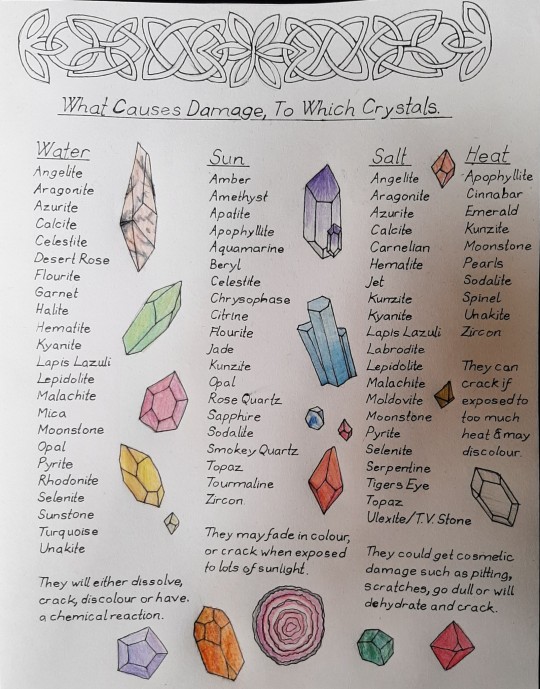 What Causes Damage, To Which Crystals.
Water
Angelite
Aragonite
Azurite
Calcite
Celestite
Desert Rose
Flourite
Garnet
Halite
Hematite
Kyanite
Lapis Lazuli
Lepidolite
Malachite
Mica
Moonstone
Opal
Pyrite
Rhodonite
Selenite
Sunstone
Turquoise
Unakite
They will either dissolve,
crack, discolour or have
a chemical reaction.
Sun
Amber
Amethyst
Apatite
Apophyllite
Aquamarine
Beryl
Celestite
Chrysophase
Citrine
Flourite
Jade
Kunzite
Opal
Rose Quartz
Sapphire
Sodalite
Smokey Quartz
Topaz
Tourmaline
Zircon
They may fade in colour,
or crack when exposed
to lots of sunlight.
Salt
Angelite
Aragonite
Azurite
Calcite
Carnelian
Hematite
Jet
Kunzite
Kyanite
Lapis Lazuli
Labrodite
Lepidolite
Malachite
Moldovite
Moonstone
Pyrite
Selenite
Serpentine
Tigers Eye
Topaz
Ulexite/T.V. Stone
They could get cosmetic
damage such as pitting,
scratches, go dull or will
dehydrate and crack.
Heat
Apophyllite
Cinnabar
Emerald
Kunzite
Moonstone
Pearls
Sodalite
Spinel
Unakite
Zircon
They can
crack if
exposed to
too much
heat & may
discolour.